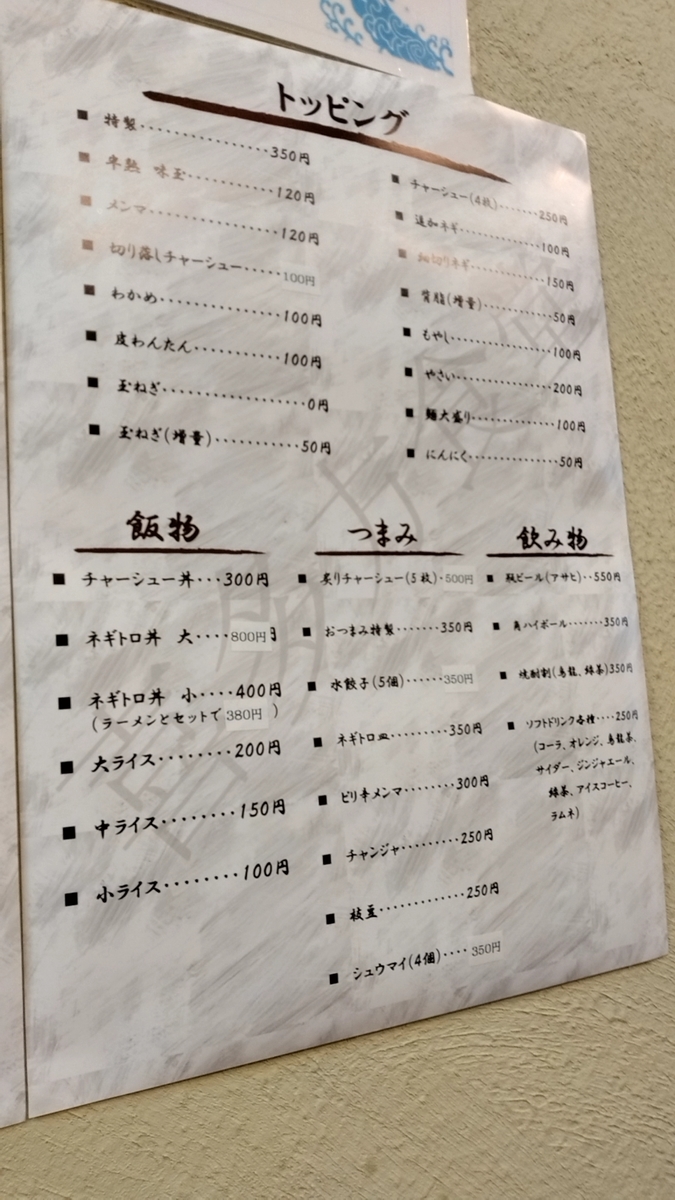 トッピング
■ 特製・・・・・・・・・・・・・・・350円
■ 半熟 味玉・・・・・・・・・・120円
■ メンマ・・・・・・・・・・・・・・・120円
■ 切り落しチャーシュー・・・・・100円
■ わかめ・・・・・・・・・・・・・・100円
■ 皮わんたん・・・・・・・・・・100円
■ 玉ねぎ・・・・・・・・・・・・・・・0円
■ 玉ねぎ(増量)・・・・・・・・・・50円
■ チャーシュー(4枚)・・・・・・・250円
■ 追加ネギ・・・・・・・・・・・・100円
■ 細切りネギ・・・・・・・・・・・150円
■ 背脂(増量)・・・・・・・・・・50円
■ もやし・・・・・・・・・・・・・・100円
■ やさい・・・・・・・・・・・・・・200円
■ 麺大盛り・・・・・・・・・・・・100円
■ にんにく・・・・・・・・・・・・・50円
飯物
■ チャーシュー丼・・・300円
■ ネギトロ丼 大・・・・800円
■ ネギトロ丼 小・・・・400円
(ラーメンとセットで 380円 )
■ 大ライス・・・・・・・・200円
■ 中ライス・・・・・・・・150円
■ 小ライス・・・・・・・・100円
つまみ
■ 炙りチャーシュー(5枚)・500円
■ おつまみ特製・・・・・・・350円
■ 水餃子(5個)・・・・・・350円
■ ネギトロ皿・・・・・・・・350円
■ ピリ辛メンマ・・・・・・・・300円
■ チャンジャ・・・・・・・・・250円
■ 枝豆・・・・・・・・・・・・250円
■ シュウマイ(4個)・・・・350円
飲み物
■ 瓶ビール(アサヒ)・・550円
■ 角ハイボール・・・・・・・350円
■ 焼酎割(烏龍、緑茶)350円
■ ソフトドリンク各種・・・・250円
(コーラ、オレンジ、烏龍茶、
サイダー、ジンジャエール、
緑茶、アイスコーヒー、
ラムネ)